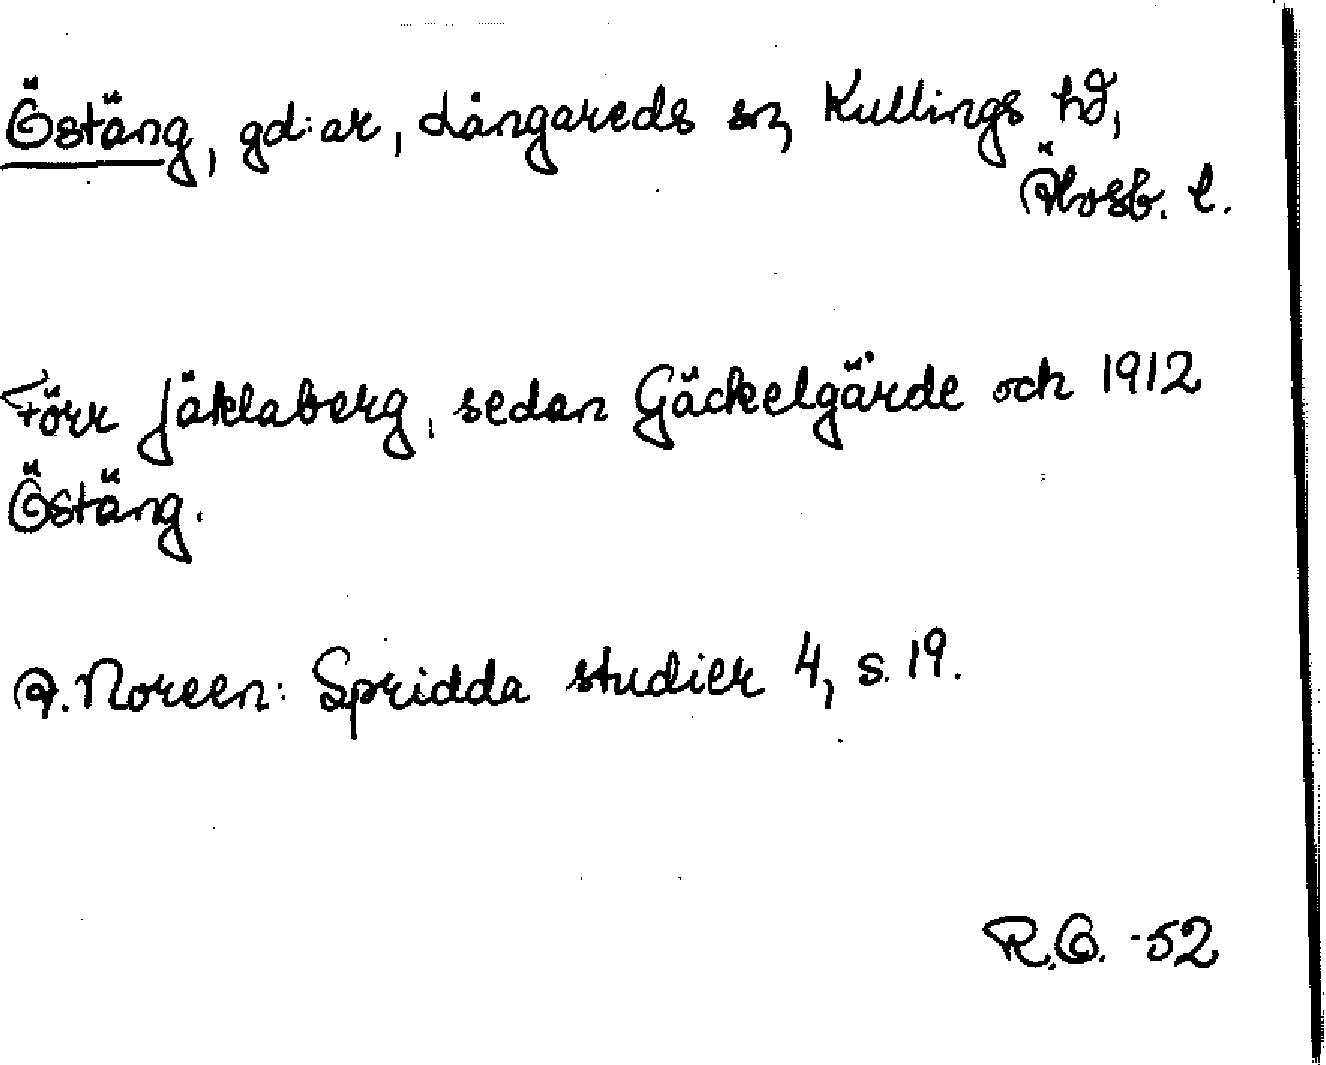 Östäng, gd:ar, Långareds sn, Kullings hd,
Älvsb. l.
Förr Jäklaberg, sedan Gäckelgärde och 1912
Östäng.
A. Noreen: Spridda studier 4, s. 19.
R.O. -52